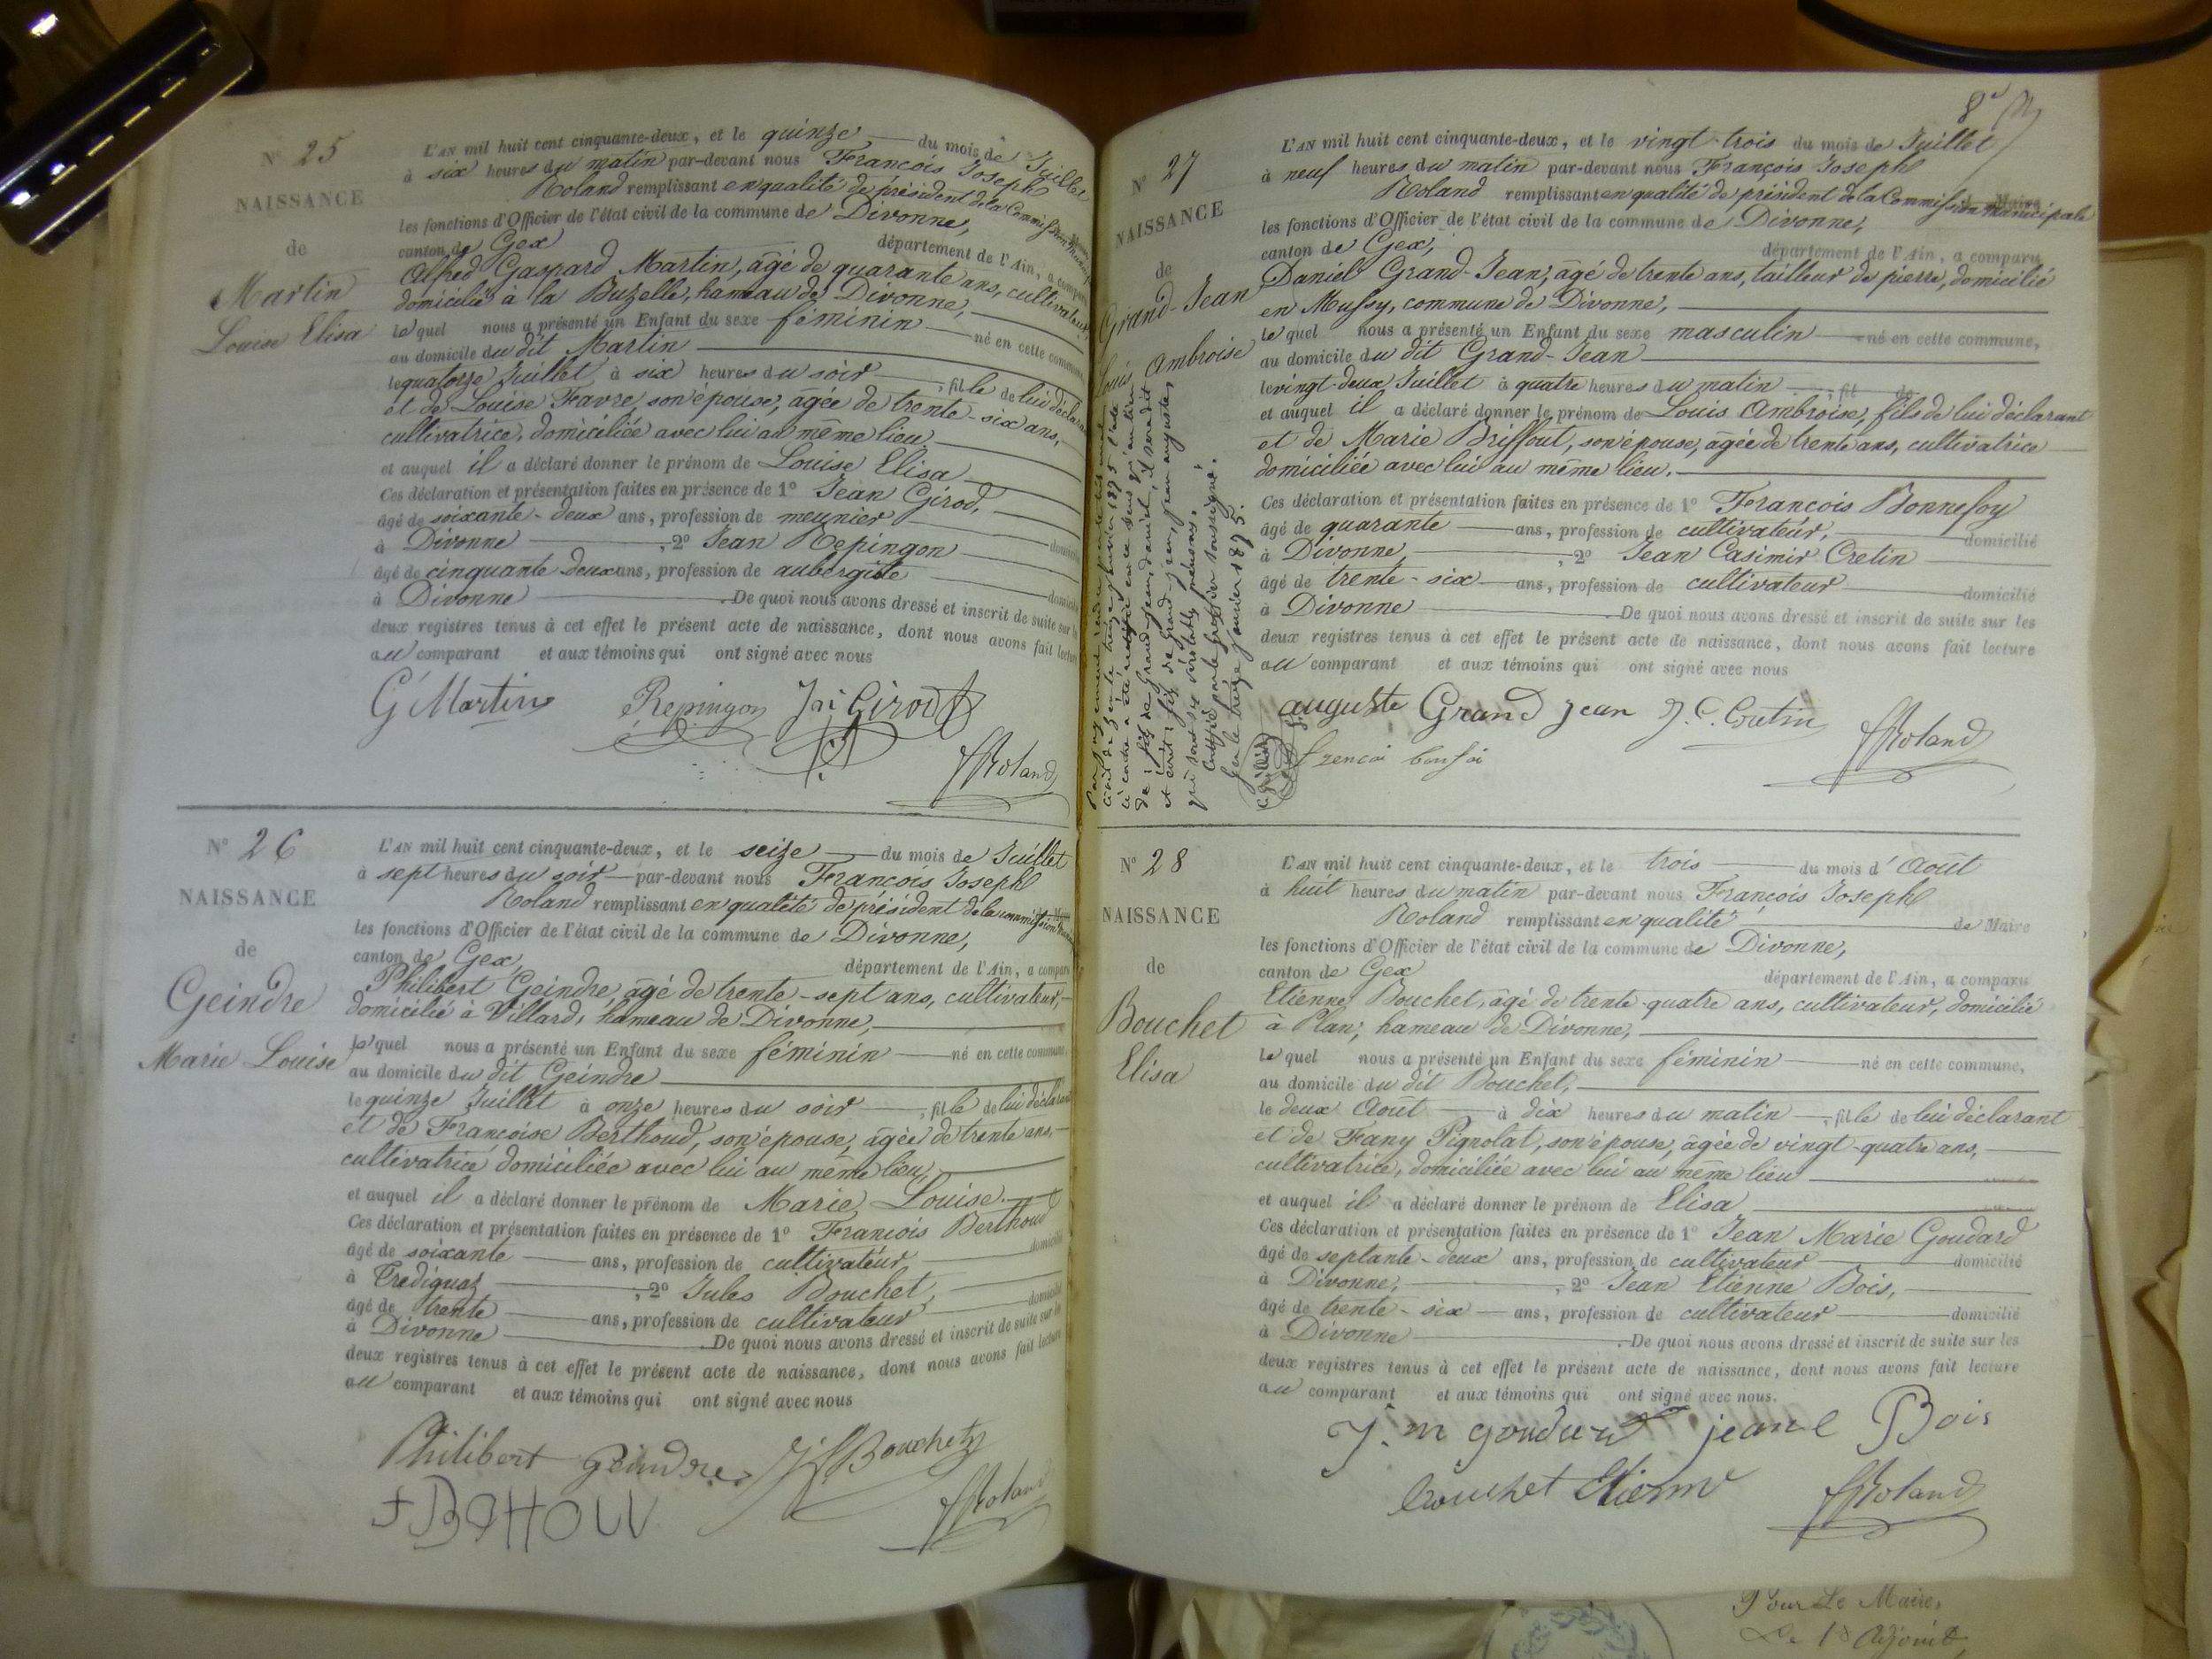 N° 25
NAISSANCE
de
Martin
Louise Elisa
L'AN mil huit cent cinquante-deux, et le quinze du mois de Juillet
à six heures du matin par-devant nous François Joseph
Roland remplissant en qualité de président de la Commission
les fonctions d'Officier de l'état civil de la commune de Divonne,
canton de Gex département de l'Ain, a comparu
Alfred Gaspard Martin, âgé de quarante ans, cultivateur
domicilié à la Buzelle, hameau de Divonne,
lequel nous a présenté un Enfant du sexe féminin né en cette commune
au domicile du dit Martin
le quatorze Juillet à six heures du soir, fille de lui déclarant
et de Louise Favre, son épouse, âgée de trente-six ans,
cultivatrice, domiciliée avec lui au même lieu
et auquel il a déclaré donner le prénom de Louise Elisa
Ces déclaration et présentation faites en présence de 1° Jean Girod,
âgé de soixante-deux ans, profession de meunier domicilié
à Divonne, 2° Jean Repingon
âgé de cinquante deux ans, profession de aubergiste domicilié
à Divonne. De quoi nous avons dressé et inscrit de suite sur les
deux registres tenus à cet effet le présent acte de naissance, dont nous avons fait lecture
au comparant et aux témoins qui ont signé avec nous
G Martin Repingon Jn Girod
Roland
N° 26
NAISSANCE
de
Geindre
Marie Louise
L'AN mil huit cent cinquante-deux, et le seize du mois de Juillet
à sept heures du soir par-devant nous François Joseph
Roland remplissant en qualité de président de la commission
les fonctions d'Officier de l'état civil de la commune de Divonne,
canton de Gex, département de l'Ain, a comparu
Philibert Geindre, âgé de trente-sept ans, cultivateur,
domicilié à Villard, hameau de Divonne,
lequel nous a présenté un Enfant du sexe féminin né en cette commune
au domicile du dit Geindre
le quinze Juillet à onze heures du soir, fille de lui déclarant
et de Françoise Berthoud, son épouse, âgée de trente ans,
cultivatrice domiciliée avec lui au même lieu,
et auquel il a déclaré donner le prénom de Marie Louise
Ces déclaration et présentation faites en présence de 1° François Berthoud
âgé de soixante ans, profession de cultivateur domicilié
à , 2° Jules Bouchet,
âgé de trente ans, profession de cultivateur domicilié
à Divonne. De quoi nous avons dressé et inscrit de suite sur les
deux registres tenus à cet effet le présent acte de naissance, dont nous avons fait lecture
au comparant et aux témoins qui ont signé avec nous
Philibert Geindre Bouchet
Roland
8e
N° 27
NAISSANCE
de
Grand-Jean
Louis Ambroise
L'AN mil huit cent cinquante-deux, et le vingt-trois du mois de Juillet
à neuf heures du matin par-devant nous François Joseph
Roland remplissant en qualité de président de la Commission municipale
les fonctions d'Officier de l'état civil de la commune de Divonne,
canton de Gex, département de l'Ain, a comparu
Daniel Grand-Jean, âgé de trente ans, tailleur de pierre, domicilié
en Mussy, commune de Divonne,
lequel nous a présenté un Enfant du sexe masculin né en cette commune,
au domicile du dit Grand-Jean
le vingt-deux Juillet à quatre heures du matin, fil de
et auquel il a déclaré donner le prénom de Louis Ambroise, fils de lui déclarant
et de Marie Briffout, son épouse, âgée de trente ans, cultivatrice
domiciliée avec lui au même lieu.
Ces déclaration et présentation faites en présence de 1° François Bonnefoy
âgé de quarante ans, profession de cultivateur, domicilié
à Divonne, 2° Jean Casimir Cretin
âgé de trente-six ans, profession de cultivateur domicilié
à Divonne. De quoi nous avons dressé et inscrit de suite sur les
deux registres tenus à cet effet le présent acte de naissance, dont nous avons fait lecture
au comparant et aux témoins qui ont signé avec nous
auguste Grand jean J. C. Cretin
Roland
N° 28
NAISSANCE
de
Bouchet
Elisa
L'AN mil huit cent cinquante-deux, et le trois du mois d'Août
à huit heures du matin par-devant nous François Joseph
Roland remplissant en qualité de Maire
les fonctions d'Officier de l'état civil de la commune de Divonne,
canton de Gex département de l'Ain, a comparu
Etienne Bouchet, âgé de trente-quatre ans, cultivateur, domicilié
à Plan, hameau de Divonne,
lequel nous a présenté un Enfant du sexe féminin né en cette commune,
au domicile du dit Bouchet,
le deux Août à dix heures du matin, fille de lui déclarant
et de Fany Pignolat, son épouse, âgée de vingt-quatre ans,
cultivatrice, domiciliée avec lui au même lieu
et auquel il a déclaré donner le prénom de Elisa
Ces déclaration et présentation faites en présence de 1° Jean Marie Goudard
âgé de septante-deux ans, profession de cultivateur domicilié
à Divonne, 2° Jean Etienne Bois,
âgé de trente-six ans, profession de cultivateur domicilié
à Divonne. De quoi nous avons dressé et inscrit de suite sur les
deux registres tenus à cet effet le présent acte de naissance, dont nous avons fait lecture
au comparant et aux témoins qui ont signé avec nous.
J. m goudard jean E Bois
bouchet Etienne Roland
Pour Le Maire,